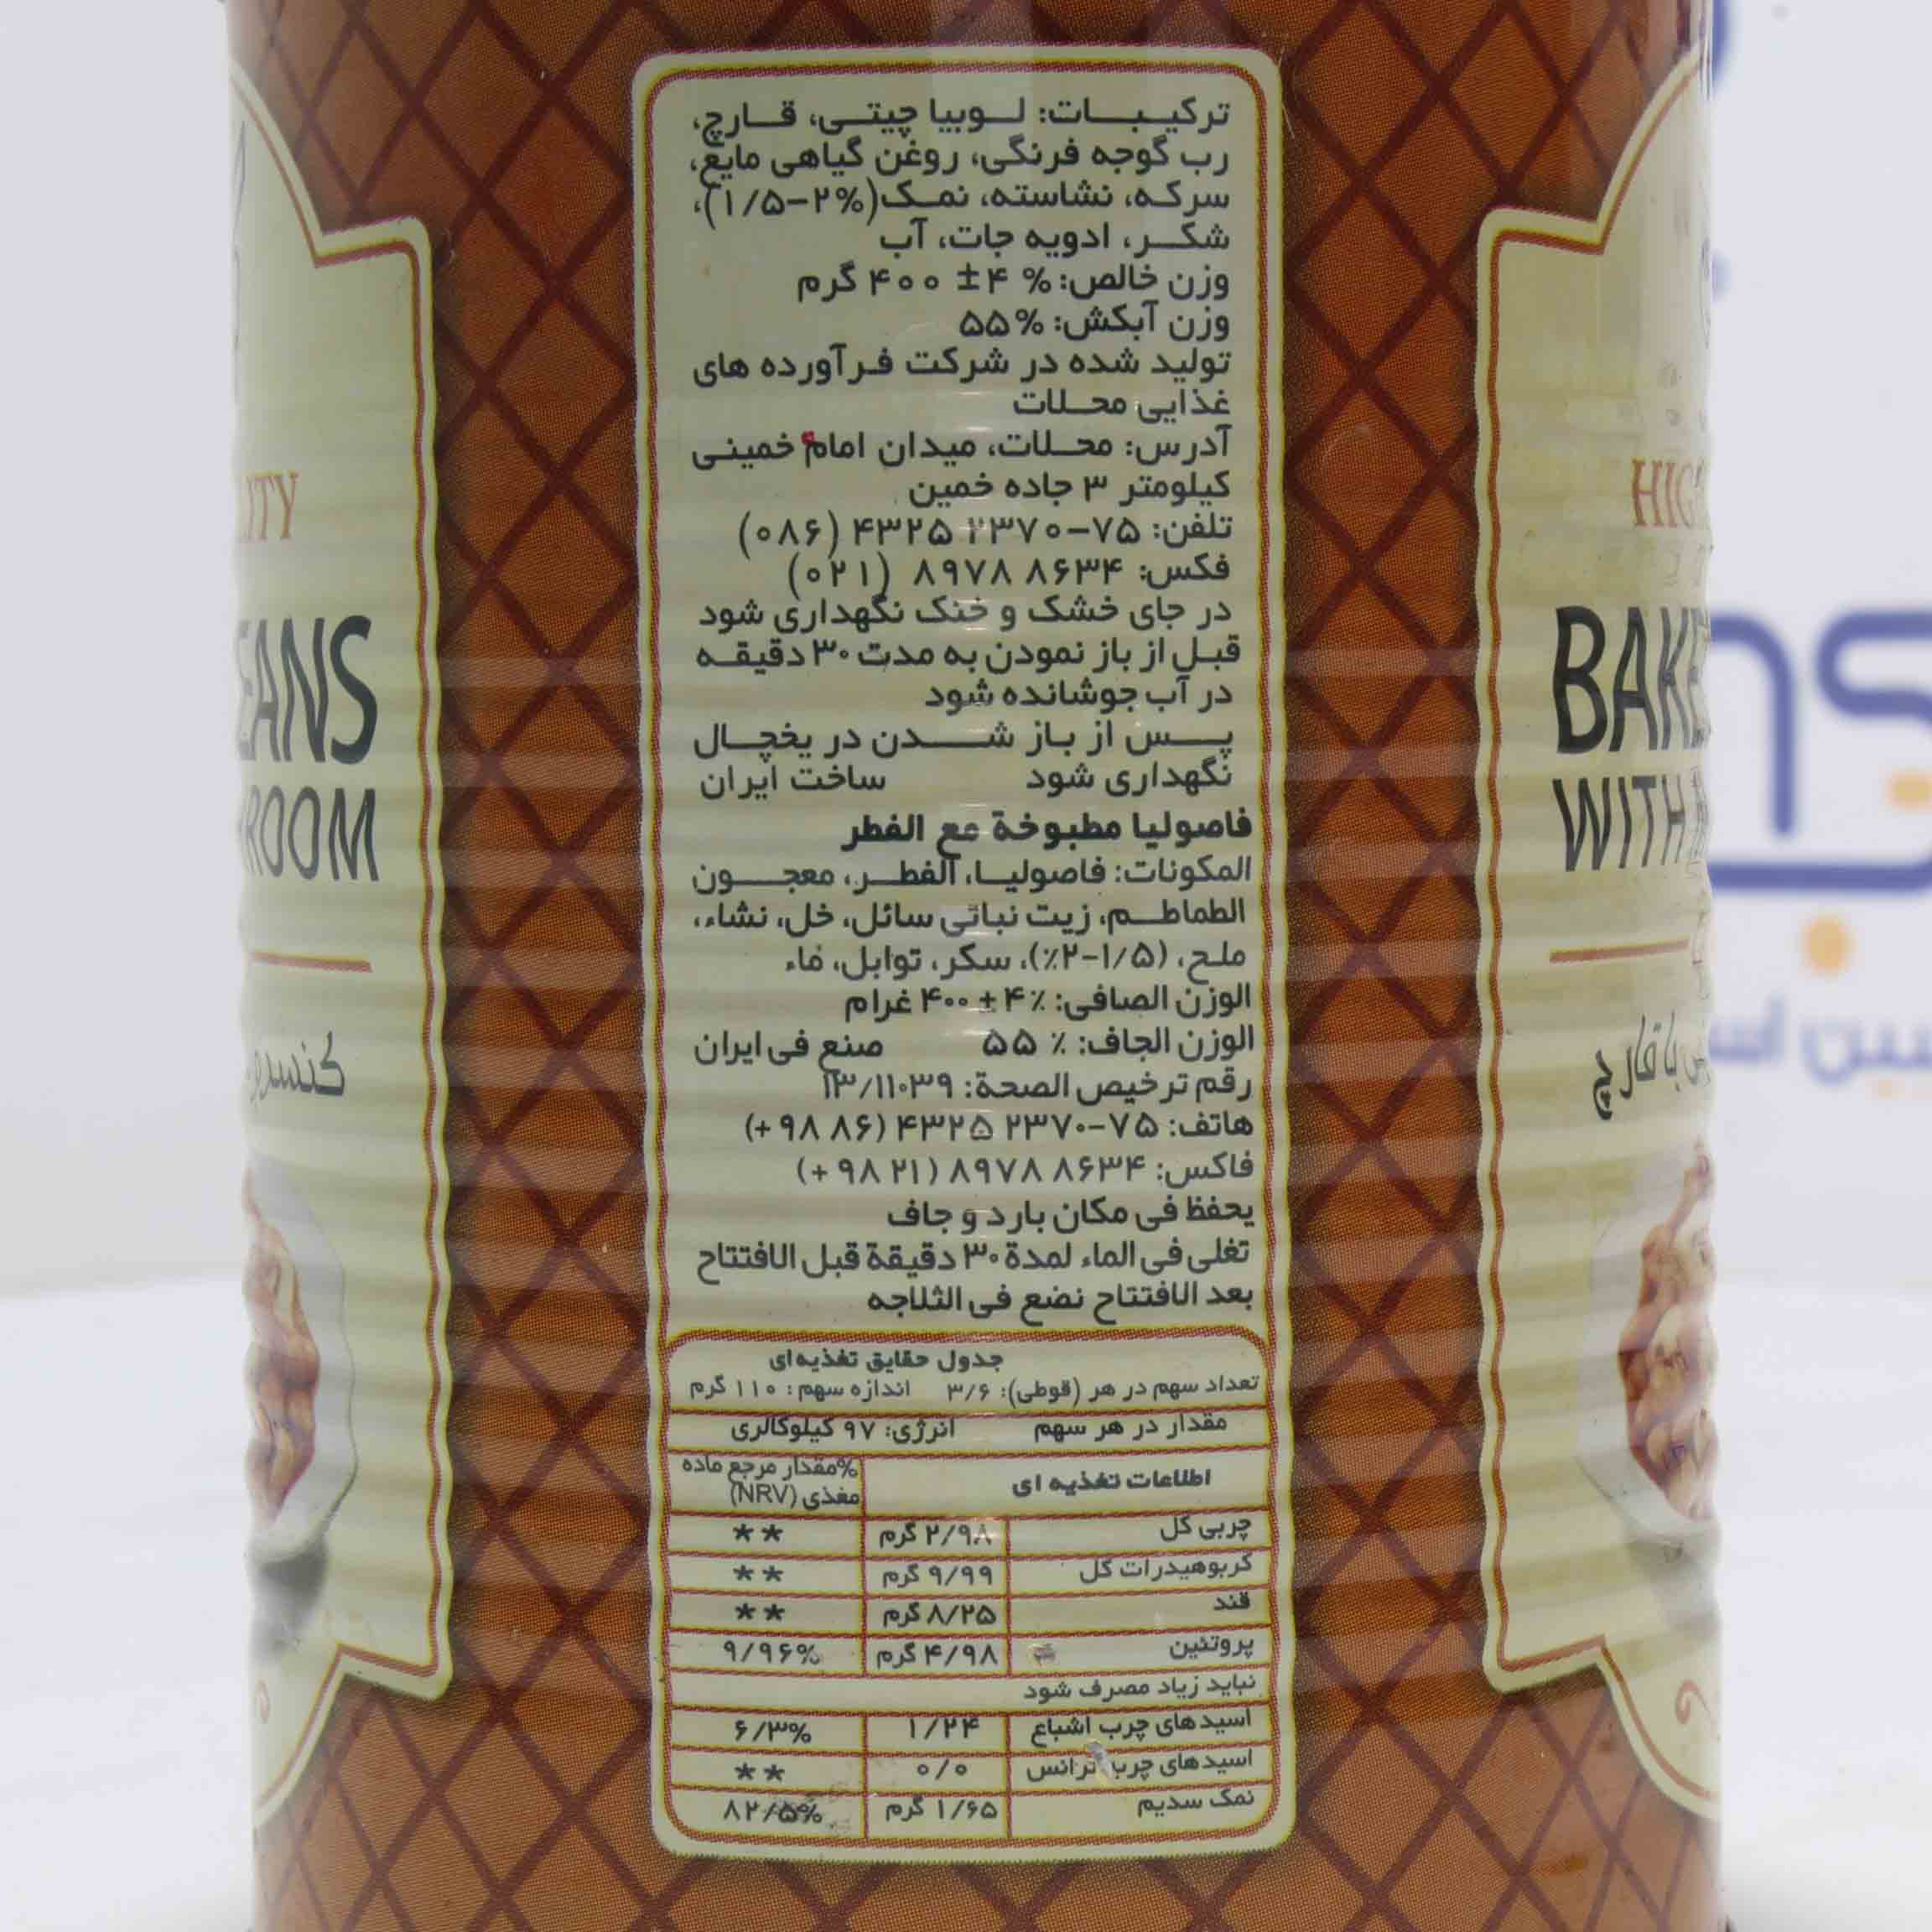 ترکیبات: لوبیا چیتی، قارچ،
رب گوجه فرنگی، روغن گیاهی مایع،
سرکه، نشاسته، نمک(۲%-۱/۵)،
شکر، ادویه جات، آب
وزن خالص: % ۴± ۴۰۰ گرم
وزن آبکش: %۵۵
تولید شده در شرکت فرآورده های
غذایی محلات
آدرس: محلات، میدان امام خمینی
کیلومتر ۳ جاده خمین
تلفن: ۷۵-۲۳۷۰ ۴۳۲۵ (۰۸۶)
فکس: ۸۶۳۴ ۸۹۷۸ (۰۲۱)
در جای خشک و خنک نگهداری شود
قبل از باز نمودن به مدت ۳۰ دقیقه
در آب جوشانده شود
پس از باز شدن در یخچال
نگهداری شود ساخت ایران
فاصولیا مطبوخة مع الفطر
المکونات: فاصولیا، الفطر، معجون
الطماطم، زیت نباتی سائل، خل، نشاء،
ملح، (۱/۵-۲٪)، سکر، توابل، ماء
الوزن الصافی: ٪۴ ± ۴۰۰ غرام
الوزن الجاف: ٪ ۵۵ صنع فی ایران
رقم ترخیص الصحة: ۱۳/۱۱۰۳۹
هاتف: ۷۵-۲۳۷۰ ۴۳۲۵ (۸۶ ۹۸ +)
فاکس: ۸۶۳۴ ۸۹۷۸ (۲۱ ۹۸ +)
یحفظ فی مکان بارد و جاف
تغلی فی الماء لمدة ۳۰ دقیقة قبل الافتتاح
بعد الافتتاح نضع فی الثلاجه
جدول حقایق تغذیه ای
تعداد سهم در هر (قوطی): ۳/۶ اندازه سهم: ۱۱۰ گرم
مقدار در هر سهم انرژی: ۹۷ کیلوکالری
اطلاعات تغذیه ای %مقدار مرجع ماده
مغذی (NRV)
چربی کل ۲/۹۸ گرم **
کربوهیدرات کل ۹/۹۹ گرم **
قند ۸/۲۵ گرم **
پروتئین ۴/۹۸ گرم ۹/۹۶%
نباید زیاد مصرف شود
اسیدهای چرب اشباع ۱/۲۴ ۶/۳%
اسیدهای چرب ترانس ۰/۰ **
نمک سدیم ۱/۶۵ گرم ۸۲/۵%
WITH
با قارچ